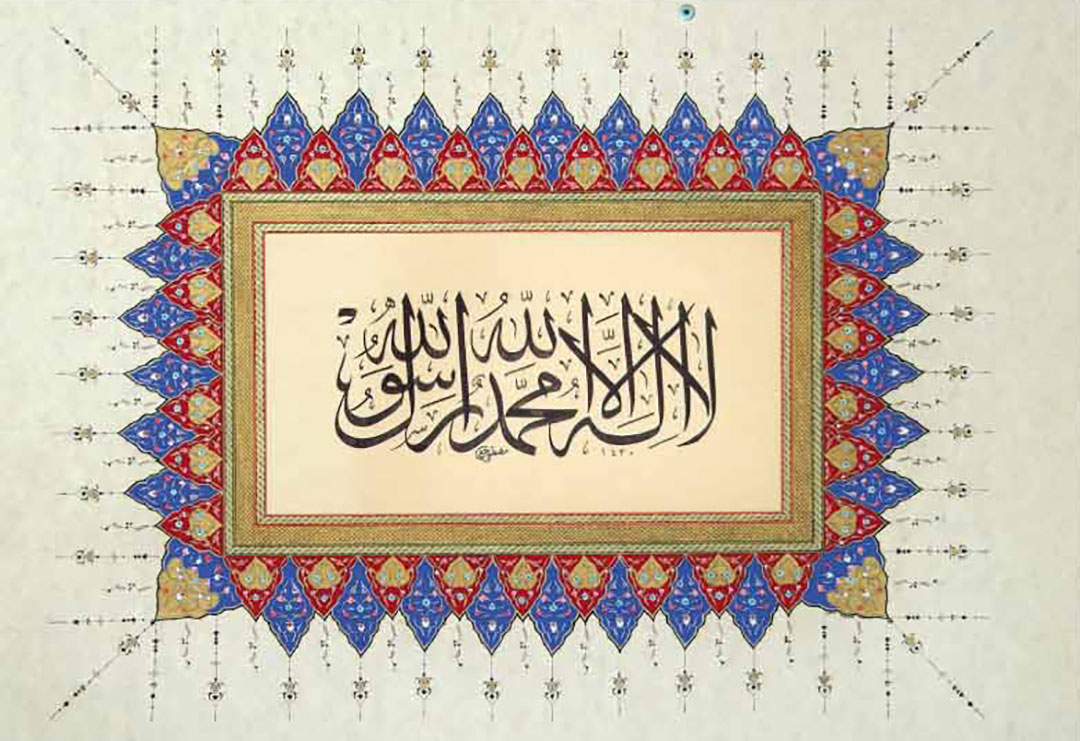 لا اله الا الله محمد رسول الله
١٤٣٠